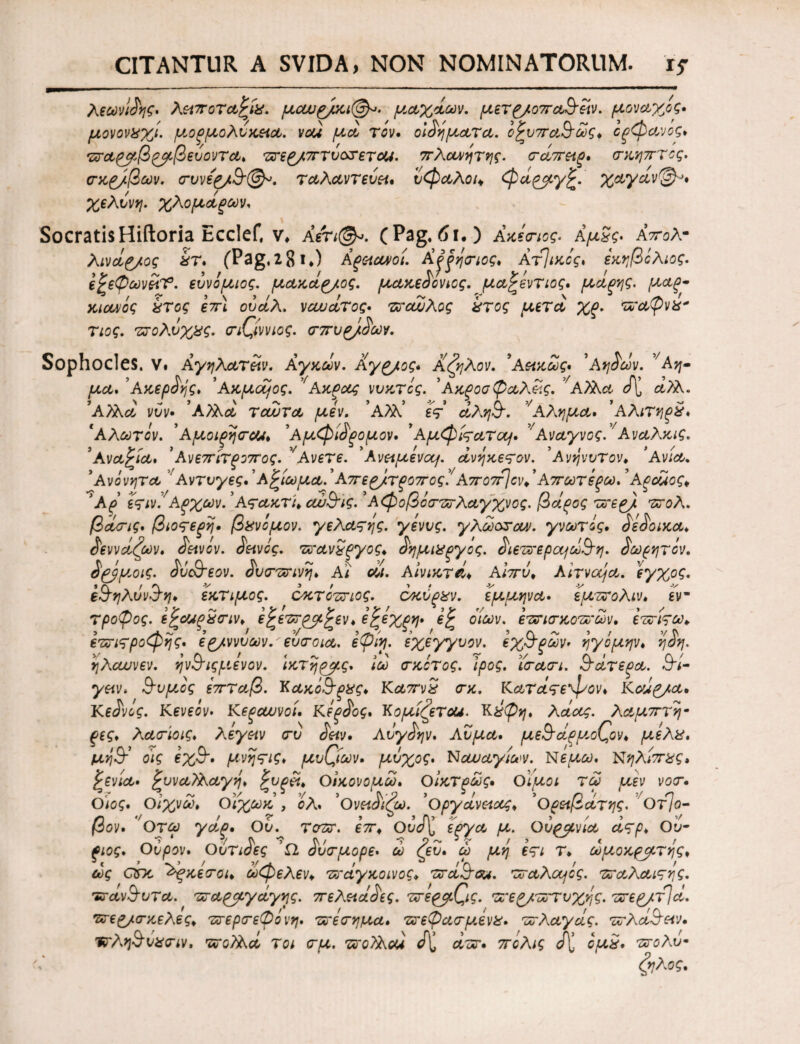 CITANTUR A SVIDA, NON NOMINATORUM. 15
λεωνίδης. λειποταξίȣ. μαυρίκι(ος). μαχάων. μετριοπαθεῖν. μοναχός.
μονονȣχί. μορμολύκεια. ναὶ μὰ τόν. οἰδήματα. ὀξυπαθῶς. ὀρφανός.
παραβραβεύοντα. περιπτύσσεται. πλανήτης. σάπειρ. σκηπτός.
σκρίβων. συνέριθ(ος). ταλαντεύει. ὕφαλοι. φάραγξ. χαγάν(ος).
χελύνη. χλομάρων.
Socratis Historia Eccles. v. Ἀέτι(ος). (Pag. 61.) Ἀκέσιος. Ἀμȣ̃ς. Ἀπολ-
λινάριος ȣ̃τ. (Pag. 281.) Ἀρειανοί. Ἀῤῥήσιος. Ἀττικός. ἐκηβόλιος.
ἐξεφωνεῖτο. εὐνόμιος. μακάριος. μακεδόνιος. μαξέντιος. μάρης. μαρ-
κιανός ȣ̃τος ἐπὶ οὐάλ. ναυάτος. παῦλος ȣ̃τος μετὰ χρ. παφνȣ-
τιος. πολύχȣς. σιϐίννιος. σπυρίδων.
Sophocles. v. Ἀγηλατεῖν. Ἀγκών. Ἄγριος. Ἄζηλον. Ἀεικῶς. Ἀηδών. Ἄη-
μα. Ἀκερδής. Ἀκμαῖος. Ἄκρας νυκτός. Ἀκροσφαλεῖς. Ἀλλὰ δ' ἀλλ.
Ἀλλὰ νῦν. Ἀλλὰ ταῦτα μέν. Ἀλλ' ἔστ' ἀληθ. Ἄλημα. Ἀλιτηρȣ̃.
Ἁλωτόν. Ἀμοιρῆσαι. Ἀμφίδρομον. Ἀμφίσταται. Ἄναγνος. Ἄναλκις.
Ἀναξία. Ἀνεπίτροπος. Ἄνετε. Ἀνειμέναι. ἀνήκεστον. Ἀνήνυτον. Ἀνία.
Ἀνόνητα Ἄντυγες. Ἀξίωμα. Ἀπερίτροπος. Ἄποπτον. Ἀπωτέρω. Ἀραῖος.
Ἆρ' ἔστιν. Ἄρχων. Ἀστακτί. αὖθις. Ἀφοβόσπλαγχνος. βάρος περὶ πολ.
βάσις. βιοστερῆ. βȣνόμον. γελαστής. γένυς. γλῶσσαν. γνωτός. δέδοικα.
δεννάζων. δεινόν. δεινός. πανȣ̃ργος. δημιȣργός. διεπεραιώθη. δωρητόν.
δρόμοις. δύσθεον. δυσπινῆ. Αἲ αἴ. Αἰνικτά. Αἰπύ. Αἰτναία. ἔγχος.
ἐθηλύνθη. ἔκτιμος. ἐκτόπιος. ἐκύρȣν. ἔμμηνα. ἔμπολιν. ἔν-
τροφος. ἐξαιρȣ̃σιν. ἐξέπραξεν. ἐξέχρη. ἐξ οἵων. ἐπισκοπῶν. ἐπίστω.
ἐπιστροφῆς. ἐριννύων. εὔσοια. ἐφίῃ. ἐχέγγυον. ἐχθρῶν. ἡγόμην. ᾔδη.
ἤλαυνεν. ἠνθισμένον. ἱκτῆρας. ἰὼ σκότος. ἶρος. ἴσασι. θάτερα. θί-
γειν. θυμὸς ἐπταβ. Κακόθρȣς. Καπνȣ̃ σκ. Κατάστεψον. Καίρια.
Κεδνός. Κενεόν. Κεραυνοί. Κέρδος. Κομίζεται. Κȣ́φη. λάας. λαμπτῆ-
ρες. λασίοις. λέγειν σὺ δεῖν. Λύγδην. Λῦμα. μεθάρμοϲον. μέλȣ.
μήθ' οἷς ἐχθ. μνῆστις. μυϐίων. μύχος. Ναυαγίων. Νέμω. Νηλίπȣς.
ξενία. ξυναλλαγῆ. ξυρεῖ. Οἰκονομῶ. Οἰκτρῶς. Οἴμοι τῶ μὲν νοσ.
Οἷος. Οἰχνῶ. Οἴχωκ', ὀλ. Ὀνειδίζω. Ὀργάνειας. Ὀρειβάτης. Ὄττο-
βον. Ὅτῳ γάρ. Οὐ. τοσπ. ἐπ. Οὐδ' ἔργα μ. Οὐρανία ἀστρ. Οὔ-
ριος. Οὖρον. Οὔτιδες Ὦ δύσμορε. ὦ ζεῦ. ὦ μή ἐστι τ. ὠμοκρατής.
ὡς οὐκ ἀρκέσοι. ὤφελεν. πάγκοινος. πάθαι. παλαιός. παλαιστής.
πάνθυτα. παραγάγης. πελειάδες. πέραϲις. περιπτυχής. περιττά.
περισκελές. περσεφόνη. πέσημα. πεφασμένȣ. πλαγάς. πλάθειν.
πληθύȣσιν. πολλά τοι σμ. πολλαὶ δ' ἀπ. πόλις δ' ὁμȣ̃. πολύ-
ζηλος.